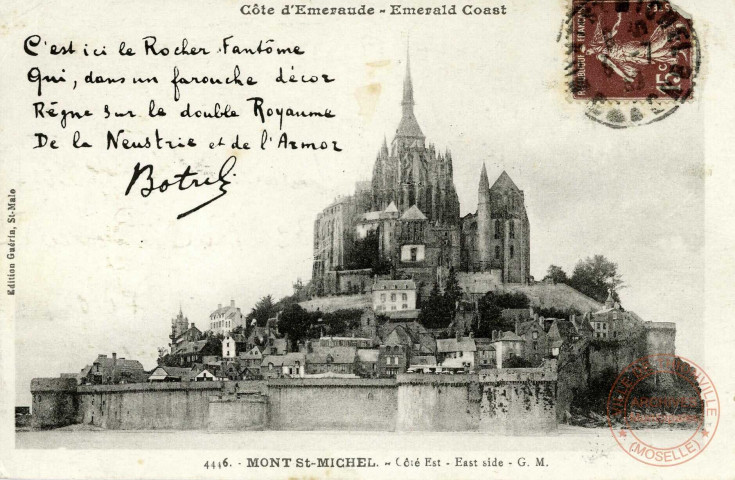 Côte d'Emeraude - Emerald Coast
C'est ici le Rocher Fantôme
Qui, dans un farouche décor
Règne sur le double Royaume
De la Neustrie et de l'Armor
Botrel
Edition Guérin, St-Malo
15c
4446. - MONT St-MICHEL. - Côté Est - East side - G. M.
(MOSELLE)